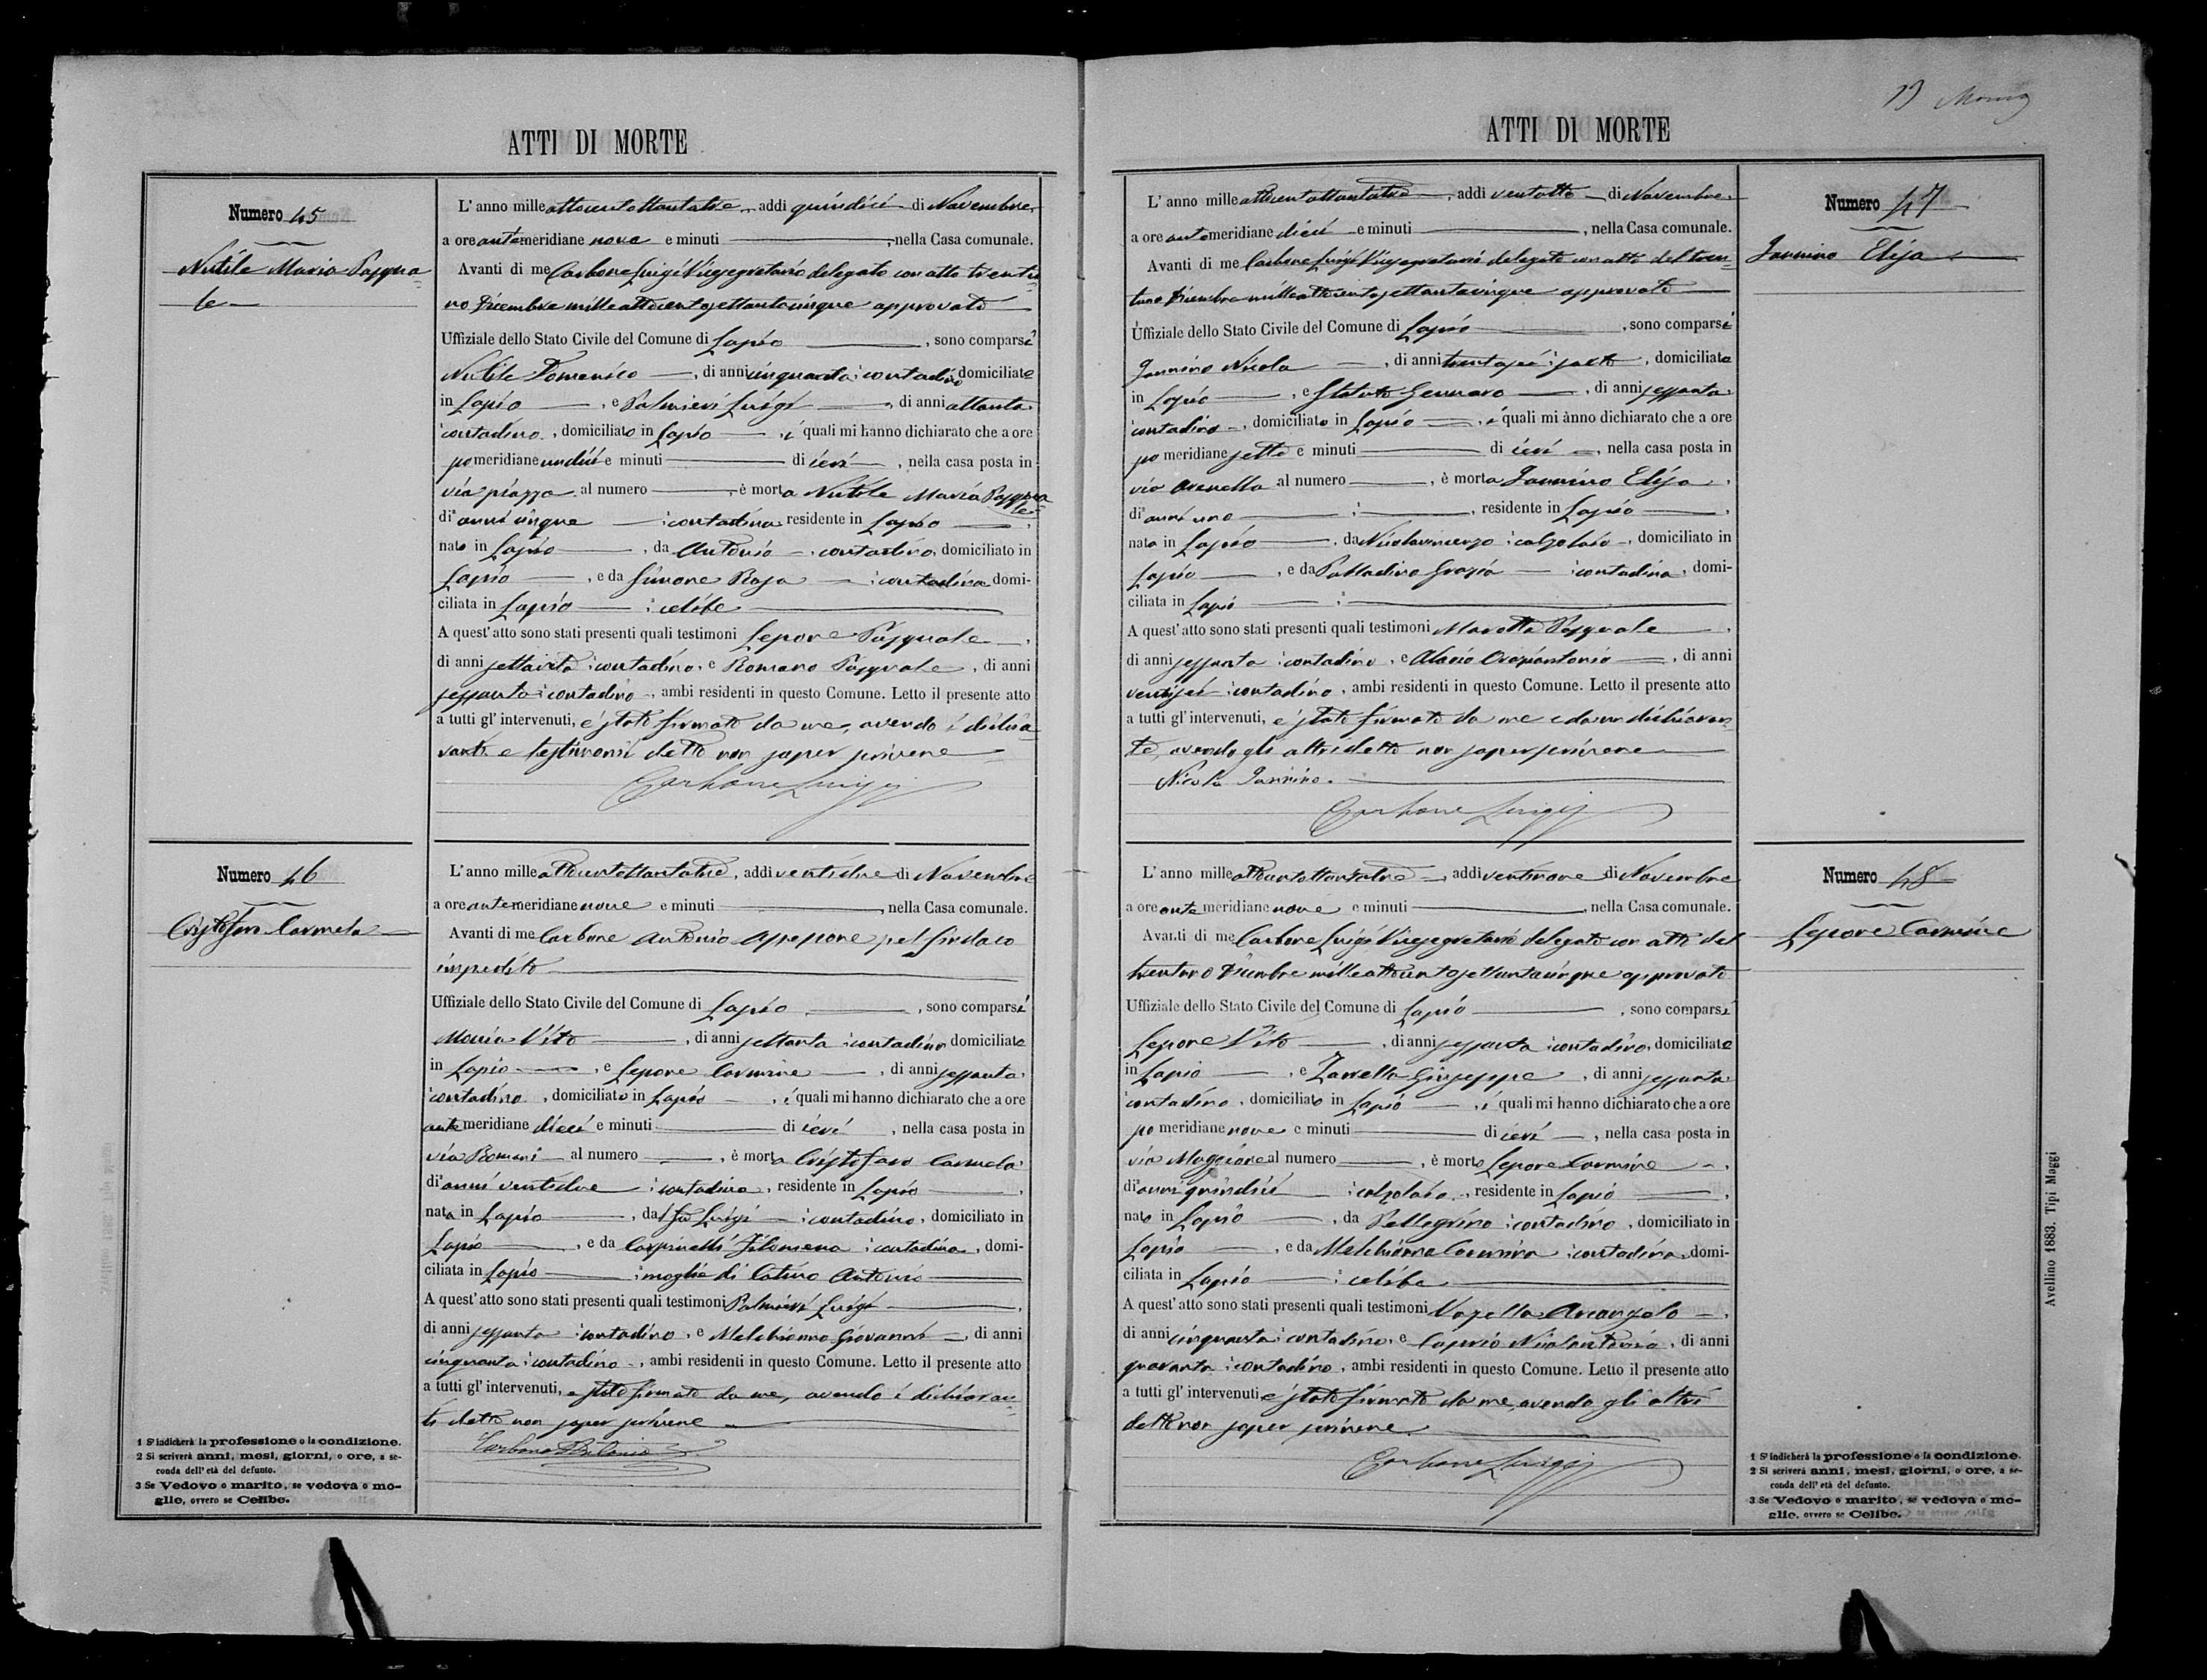 ATTI DI MORTE
Numero 45
Nutile Maria Pasqua=
le
L'anno mille ottocentottantatre, addì quindici di Novembre,
a ore antemeridiane nove e minuti, nella Casa comunale.
Avanti di me Carbone Luigi Vicesegretario delegato con atto trentu=
no Dicembre milleottocentosettantacinque approvato
Uffiziale dello Stato Civile del Comune di Lapio, sono comparsi
Nutile Domenico, di anni cinquanta contadino domiciliato
in Lapio, e Palmieri Luigi, di anni ottanta
contadino, domiciliato in Lapio, i quali mi hanno dichiarato che a ore
pomeridiane undici e minuti di ieri, nella casa posta in
via piazza al numero, è morta Nutile Maria Pasqua
le
di anni cinque contadina residente in Lapio,
nata in Lapio, da Antonio, contadino, domiciliato in
Lapio, e da Simone Rosa contadina domi-
ciliata in Lapio celibe
A quest'atto sono stati presenti quali testimoni Lepore Pasquale,
di anni settanta contadino, e Romano Pasquale, di anni
sessanta contadino, ambi residenti in questo Comune. Letto il presente atto
a tutti gl'intervenuti, è stato firmato da me, avendo i dichia=
ranti e testimoni detto non saper scrivere
Carbone Luigi
Numero 46
Cristofaro Carmela
L'anno mille ottocentottantatre, addì ventidue di Novembre
a ore antemeridiane nove e minuti, nella Casa comunale.
Avanti di me Carbone Antonio Assessore pel Sindaco
impedito
Uffiziale dello Stato Civile del Comune di Lapio, sono comparsi
Vito, di anni settanta contadino domiciliato
in Lapio, e Lepore Carmine, di anni sessanta
contadino, domiciliato in Lapio, i quali mi hanno dichiarato che a ore
antemeridiane dieci e minuti di ieri, nella casa posta in
via Romani al numero, è morta Cristofaro Carmela
di anni ventidue contadina, residente in Lapio,
nata in Lapio, dal fu Luigi contadino, domiciliato in
Lapio, e da Carpinelli Filomena contadina, domi-
ciliata in Lapio moglie di Catino Antonio
A quest'atto sono stati presenti quali testimoni Palmieri Luigi,
di anni sessanta contadino, e Melchionno Giovanni, di anni
cinquanta contadino, ambi residenti in questo Comune. Letto il presente atto
a tutti gl'intervenuti, è stato firmato da me, avendo i dichiaran=
ti detto non saper scrivere
Carbone Antonio
1 S'indicherà la professione o la condizione.
2 Si scriverà anni, mesi, giorni, o ore, a se-
conda dell'età del defunto.
3 Se Vedovo o marito, se vedova o mo-
glie, ovvero se Celibe.
ATTI DI MORTE
Numero 47
Jannino Elisa
L'anno mille ottocentottantatre, addì ventotto di Novembre
a ore antemeridiane dieci e minuti, nella Casa comunale.
Avanti di me Carbone Luigi Vicesegretario delegato con atto del tren=
tuno Dicembre milleottocentosettantacinque approvato
Uffiziale dello Stato Civile del Comune di Lapio, sono comparsi
Jannino Nicola, di anni trentasei, domiciliato
in Lapio, e Statuto Gennaro, di anni sessanta
contadino, domiciliato in Lapio, i quali mi ànno dichiarato che a ore
pomeridiane sette e minuti di ieri, nella casa posta in
via Arenella al numero, è morta Jannino Elisa,
di anni uno, residente in Lapio,
nata in Lapio, da Nicolavincenzo calzolaio, domiciliato in
Lapio, e da Palladino Grazia contadina, domi-
ciliata in Lapio
A quest'atto sono stati presenti quali testimoni Marotta Pasquale,
di anni sessanta contadino, e, di anni
ventisei contadino, ambi residenti in questo Comune. Letto il presente atto
a tutti gl'intervenuti, è stato firmato da me e da un dichiaran=
te, avendo gli altri detto non saper scrivere
Nicola Jannino.
Carbone Luigi
Numero 48
Lepore Carmine
L'anno mille ottocentottantatre, addì ventinove di Novembre
a ore antemeridiane nove e minuti, nella Casa comunale.
Avanti di me Carbone Luigi Vicesegretario delegato con atto del
trentuno Dicembre milleottocentosettantacinque approvato
Uffiziale dello Stato Civile del Comune di Lapio, sono comparsi
Lepore Vito, di anni sessanta contadino, domiciliato
in Lapio, e Zarrella Giuseppe, di anni sessanta
contadino, domiciliato in Lapio, i quali mi hanno dichiarato che a ore
pomeridiane nove e minuti di ieri, nella casa posta in
via Maggiore al numero, è morto Lepore Carmine,
di anni quindici calzolaio, residente in Lapio,
nato in Lapio, da Pellegrino contadino, domiciliato in
Lapio, e da Melchionna Carmina contadina, domi-
ciliata in Lapio celibe
A quest'atto sono stati presenti quali testimoni Vozella Arcangelo,
di anni cinquanta contadino, e Caprio Nicolantonio, di anni
quaranta contadino, ambi residenti in questo Comune. Letto il presente atto
a tutti gl'intervenuti è stato firmato da me, avendo gli altri
detto non saper scrivere
Carbone Luigi
1 S'indicherà la professione o la condizione.
2 Si scriverà anni, mesi, giorni, o ore, a se-
conda dell'età del defunto.
3 Se Vedovo o marito, se vedova o mo-
glie, ovvero se Celibe.
Avellino 1883. Tipi Maggi